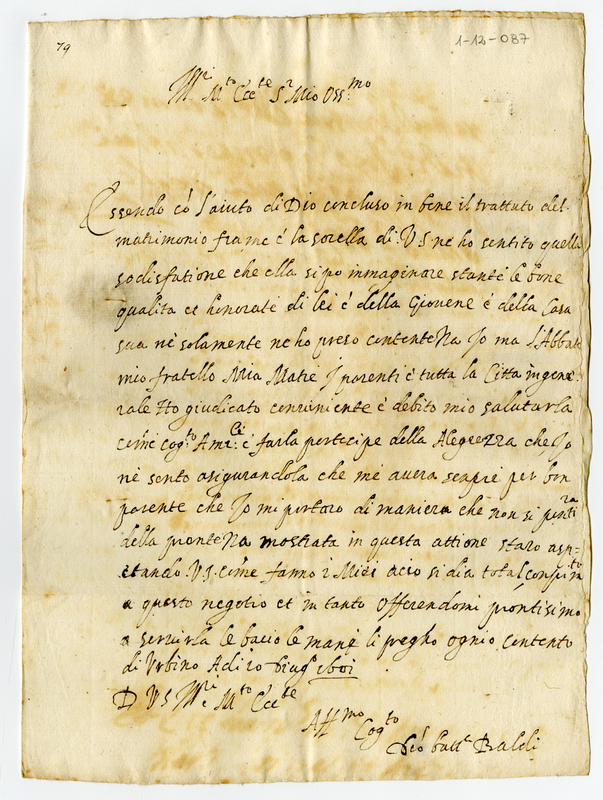 79
1-12-087
Ill.ri M.to Ecc.te S.r Mio Oss.mo
Essendo có l'aiuto di Dio concluso in bene il trattato del
matrimonio frame é la sorella di V.S. ne ho sentito quella
sodisfatione che ella si po inmaginare stante le bone
qualita et honorate di lei é della Giovene é della Casa
sua né solamente ne ho preso contenteza Jo ma l'Abbate
mio fratello Mia Matre J parenti é tutta la Citta ingene
rale Ho giudicato conviniente é debito mio salutarla
come Cog.to Am: é farla partecipe della Alegrezza che Jo
né sento asigurandola che mé avera senpre per bon
parente che Jo mi portaro di maniera che non si pentira
della pronteza mostrata in questa attione staro asp=
etando V.S. come fanno i Miei acio si dia total conpim.to
a questo negotio et in tanto offerendomi prontisimo
a servirla le bacio le mane li pregho ognio contento
di Urbino Adi 20 Giug.o 1601
D V S Ill.ri M.to Ecc.te
Aff.mo Cog.to
Gio batt.a Baldi